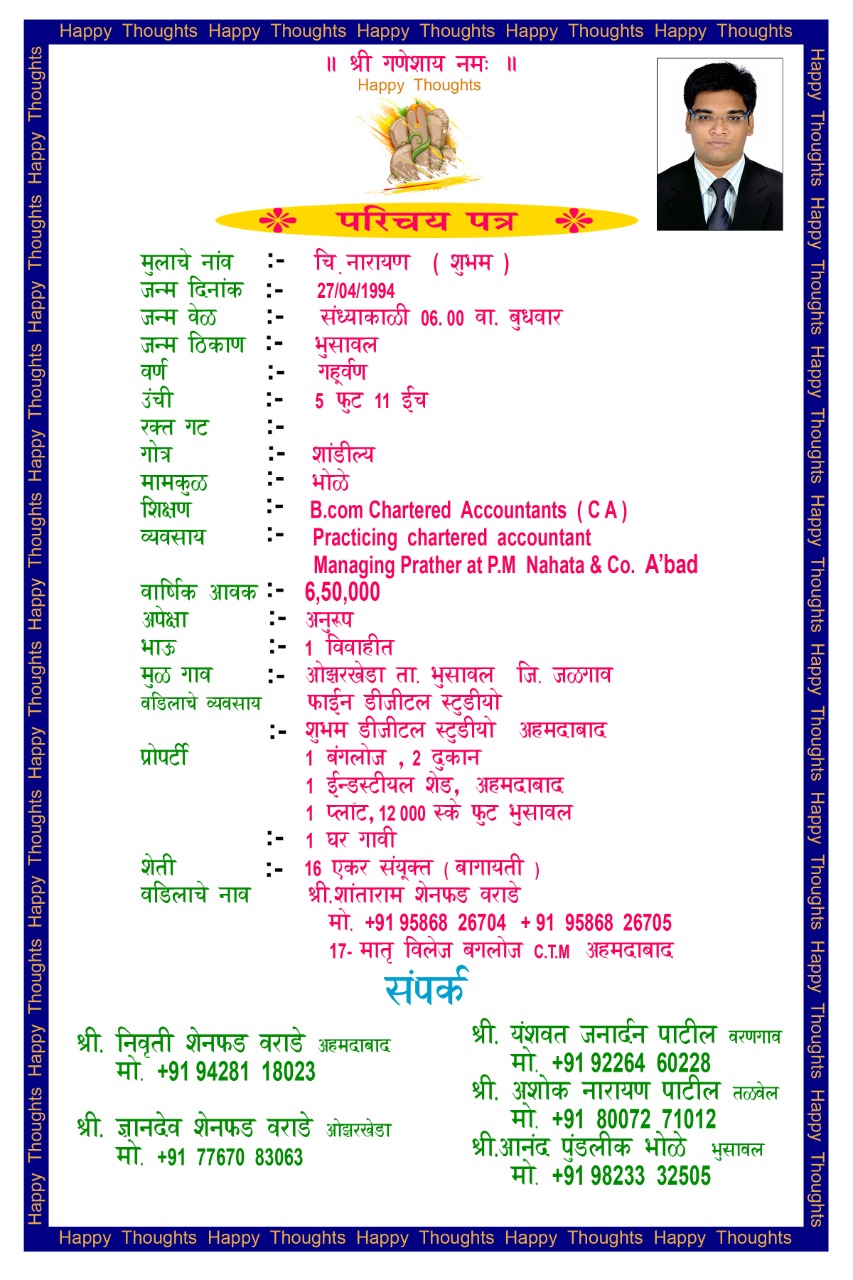 Happy Thoughts Happy Thoughts Happy Thoughts Happy Thoughts Happy Thoughts
॥ श्री गणेशाय नमः ॥
Happy Thoughts
परिचय पत्र
मुलाचे नांव :- चि.नारायण ( शुभम )
जन्म दिनांक :- 27/04/1994
जन्म वेळ :- संध्याकाळी 06.00 वा. बुधवार
जन्म ठिकाण :- भुसावल
वर्ण :- गहूर्वण
उंची :- 5 फुट 11 ईच
रक्त गट :-
गोत्र :- शांडील्य
मामकुळ :- भोळे
शिक्षण :- B.com Chartered Accountants ( C A )
व्यवसाय :- Practicing chartered accountant
Managing Prather at P.M Nahata & Co. A'bad
वार्षिक आवक :- 6,50,000
अपेक्षा :- अनुरूप
भाऊ :- 1 विवाहीत
मुळ गाव :- ओझरखेडा ता. भुसावल जि. जळगाव
वडिलाचे व्यवसाय फाईन डीजीटल स्टुडीयो
:- शुभम डीजीटल स्टुडीयो अहमदाबाद
प्रोपर्टी 1 बंगलोज , 2 दुकान
1 ईन्डस्टीयल शेड, अहमदाबाद
1 प्लांट, 12 000 स्के फुट भुसावल
:- 1 घर गावी
शेती :- 16 एकर संयूक्त ( बागायती )
वडिलाचे नाव श्री.शांताराम शेनफड वराडे
मो. +91 95868 26704 + 91 95868 26705
17- मातृ विलेज बगलोज C.T.M अहमदाबाद
संपर्क
श्री. निवृती शेनफड वराडे अहमदाबाद
मो. +91 94281 18023
श्री. ज्ञानदेव शेनफड वराडे ओझरखेडा
मो. +91 77670 83063
श्री. यंशवत जनार्दन पाटील वरणगाव
मो. +91 92264 60228
श्री. अशोक नारायण पाटील तळवेल
मो. +91 80072 71012
श्री.आनंद पुंडलीक भोळे भुसावल
मो. +91 98233 32505
Happy Thoughts Happy Thoughts Happy Thoughts Happy Thoughts Happy Thoughts
Happy Thoughts Happy Thoughts Happy Thoughts Happy Thoughts Happy Thoughts Happy Thoughts Happy Thoughts Happy Thoughts
Happy Thoughts Happy Thoughts Happy Thoughts Happy Thoughts Happy Thoughts Happy Thoughts Happy Thoughts Happy Thoughts